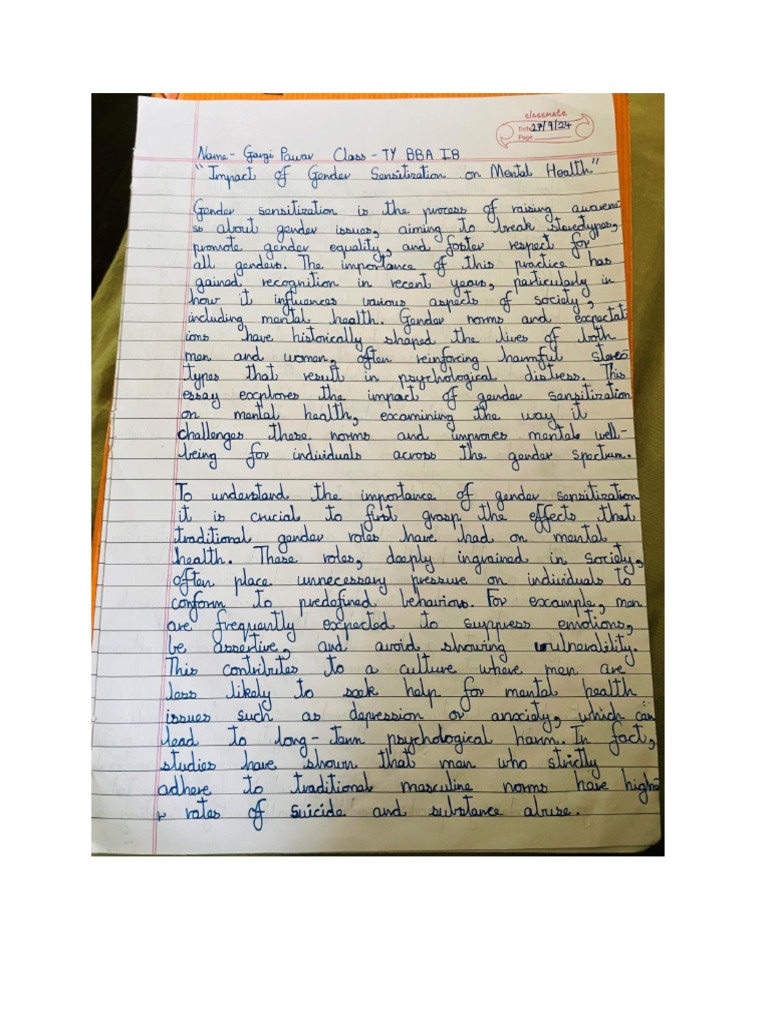 classmate
Date 27/9/24
Page
Name - Gargi Pawar Class - TY BBA IB
"Impact of Gender Sensitization on Mental Health"
Gender sensitization is the process of raising awarene-
ss about gender issues, aiming to break stereotypes,
promote gender equality, and foster respect for
all genders. The importance of this practice has
gained recognition in recent years, particularly in
how it influences various aspects of society,
including mental health. Gender norms and expectat
ions have historically shaped the lives of both
men and women, often reinforcing harmful stereo
types that result in psychological distress. This
essay explores the impact of gender sensitization
on mental health, examining the way it
challenges these norms and improves mental well-
being for individuals across the gender spectrum.
To understand the importance of gender sensitization
it is crucial to first grasp the effects that
traditional gender roles have had on mental
health. These roles, deeply ingrained in society,
often place unnecessary pressure on individuals to
conform to predefined behaviors. For example, men
are frequently expected to suppress emotions,
be assertive, and avoid showing vulnerability.
This contributes to a culture where men are
less likely to seek help for mental health
issues such as depression or anxiety, which can
lead to long-term psychological harm. In fact,
studies have shown that men who strictly
adhere to traditional masculine norms have highe
r rates of suicide and substance abuse.